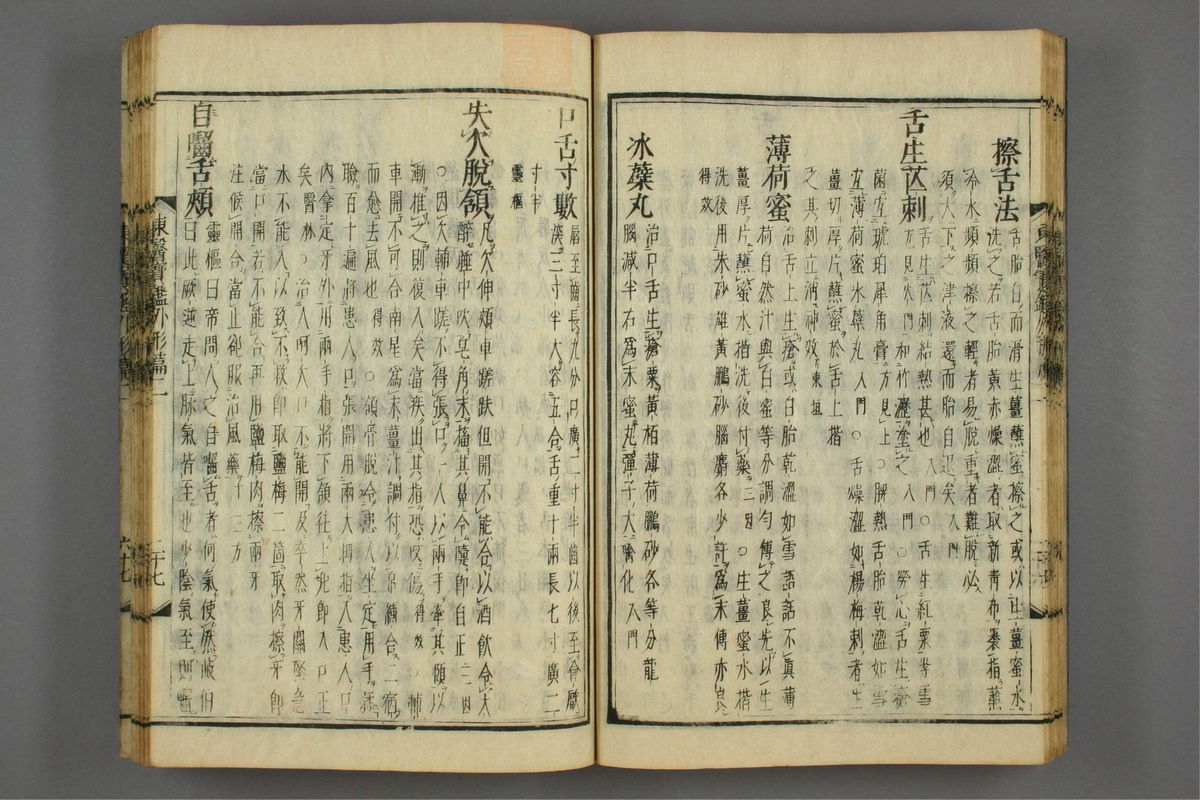 擦舌法
舌胎白而滑生薑蘸蜜擦之或以生薑蜜水
洗之若舌胎黃赤燥澀者取新青布裹指蘸
冷水頻頻擦之輕者易脫重者難脫必
須大下之津液還而胎自退矣入門
舌生芒刺
舌生芒刺結熱甚也入門○舌生紅粟
方見火門和竹瀝塗之入門○勞心舌生瘡
菌宜琥珀犀角膏方見上○脾熱舌胎乾澀如雪
宜薄荷蜜氷蘗丸入門○舌燥澀如楊梅刺者生
薑切厚片蘸蜜於舌上揩
之其刺立消神效東垣
薄荷蜜
治舌上生瘡或白胎乾澀如雪語話不眞薄
荷自然汁與白蜜等分調勻傅之良先以生
薑厚片蘸蜜水揩洗後付藥三因○生薑蜜水揩
洗後用朱砂雄黃鵬砂腦麝各少許爲末傅亦良
得效
氷蘗丸
治口舌生瘡粟黃栢薄荷鵬砂各等分龍
腦減半右爲末蜜丸彈子大噙化入門
口舌寸數
脣至齒長九分口廣二寸半齒以後至會厭
深三寸半大容五合舌重十兩長七寸廣二
寸半
靈樞
失欠脫頷
凡欠伸頰車蹉跌但開不能合以酒飮令大
醉睡中以皂角末搐其鼻令嚔卽自正三因
○因欠輔車蹉不得張口一人以兩手牽其頤以
漸推之則復入矣當疾出其指恐咬傷得效○輔
車開不可合南星爲末薑汁調付以帛練合二宿
而愈去風也得效○頷骨脫令患人坐定用手揉
臉百十遍將患人口張開用兩大拇指入患人口
內拿定牙外用兩手指將下頷往上兜卽入口正
矣醫林○治人呵欠口不能開及卒然牙關緊急
水不能入以致不救卽取鹽梅二箇取肉擦牙卽
當口開若不能合再用鹽梅肉擦兩牙
注候開合當止却服治風藥十三方
自嚙舌頰
靈樞曰帝問人之自嚙舌者何氣使然岐伯
曰此厥逆走上脈氣皆至也少陰氣至則嚙
東醫寶鑑外形篇二
二十七
六十七